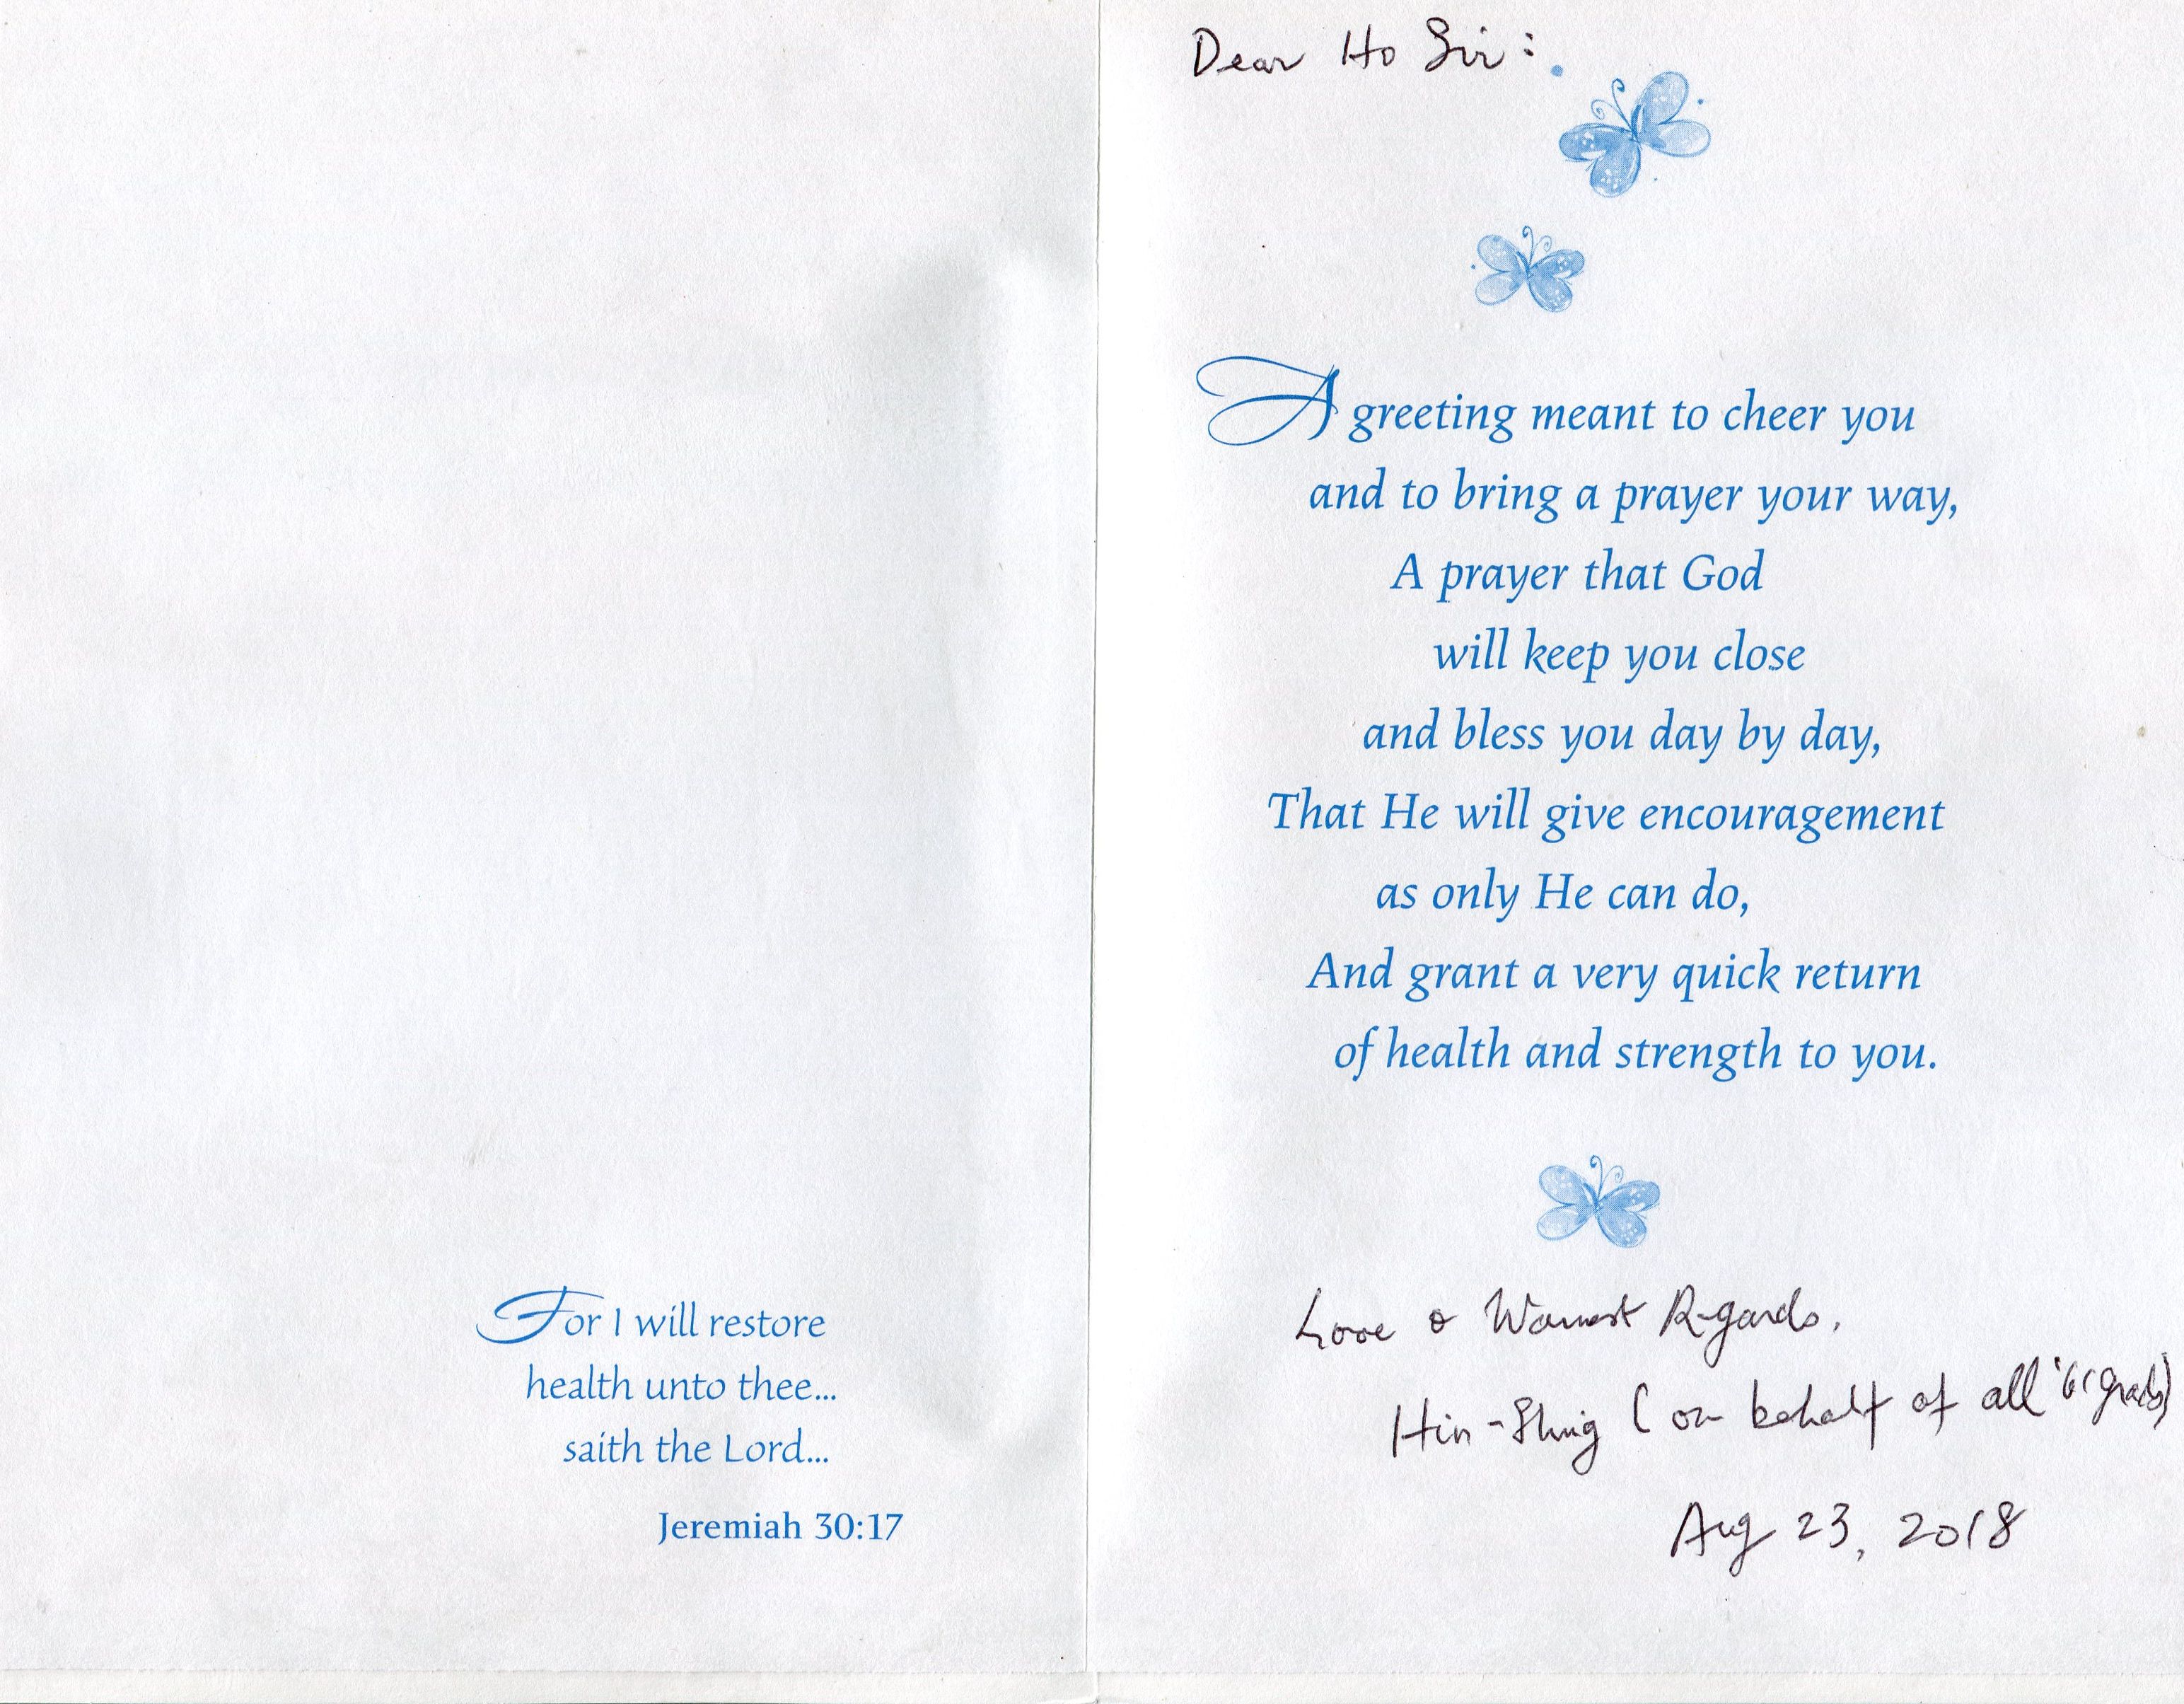 For I will restore
health unto thee...
saith the Lord...
Jeremiah 30:17
Dear Ho Sir:
A greeting meant to cheer you
and to bring a prayer your way,
A prayer that God
will keep you close
and bless you day by day,
That He will give encouragement
as only He can do,
And grant a very quick return
of health and strength to you.
Love & Warmest Regards,
Hin-Shing (on behalf of all '61 grads)
Aug 23, 2018